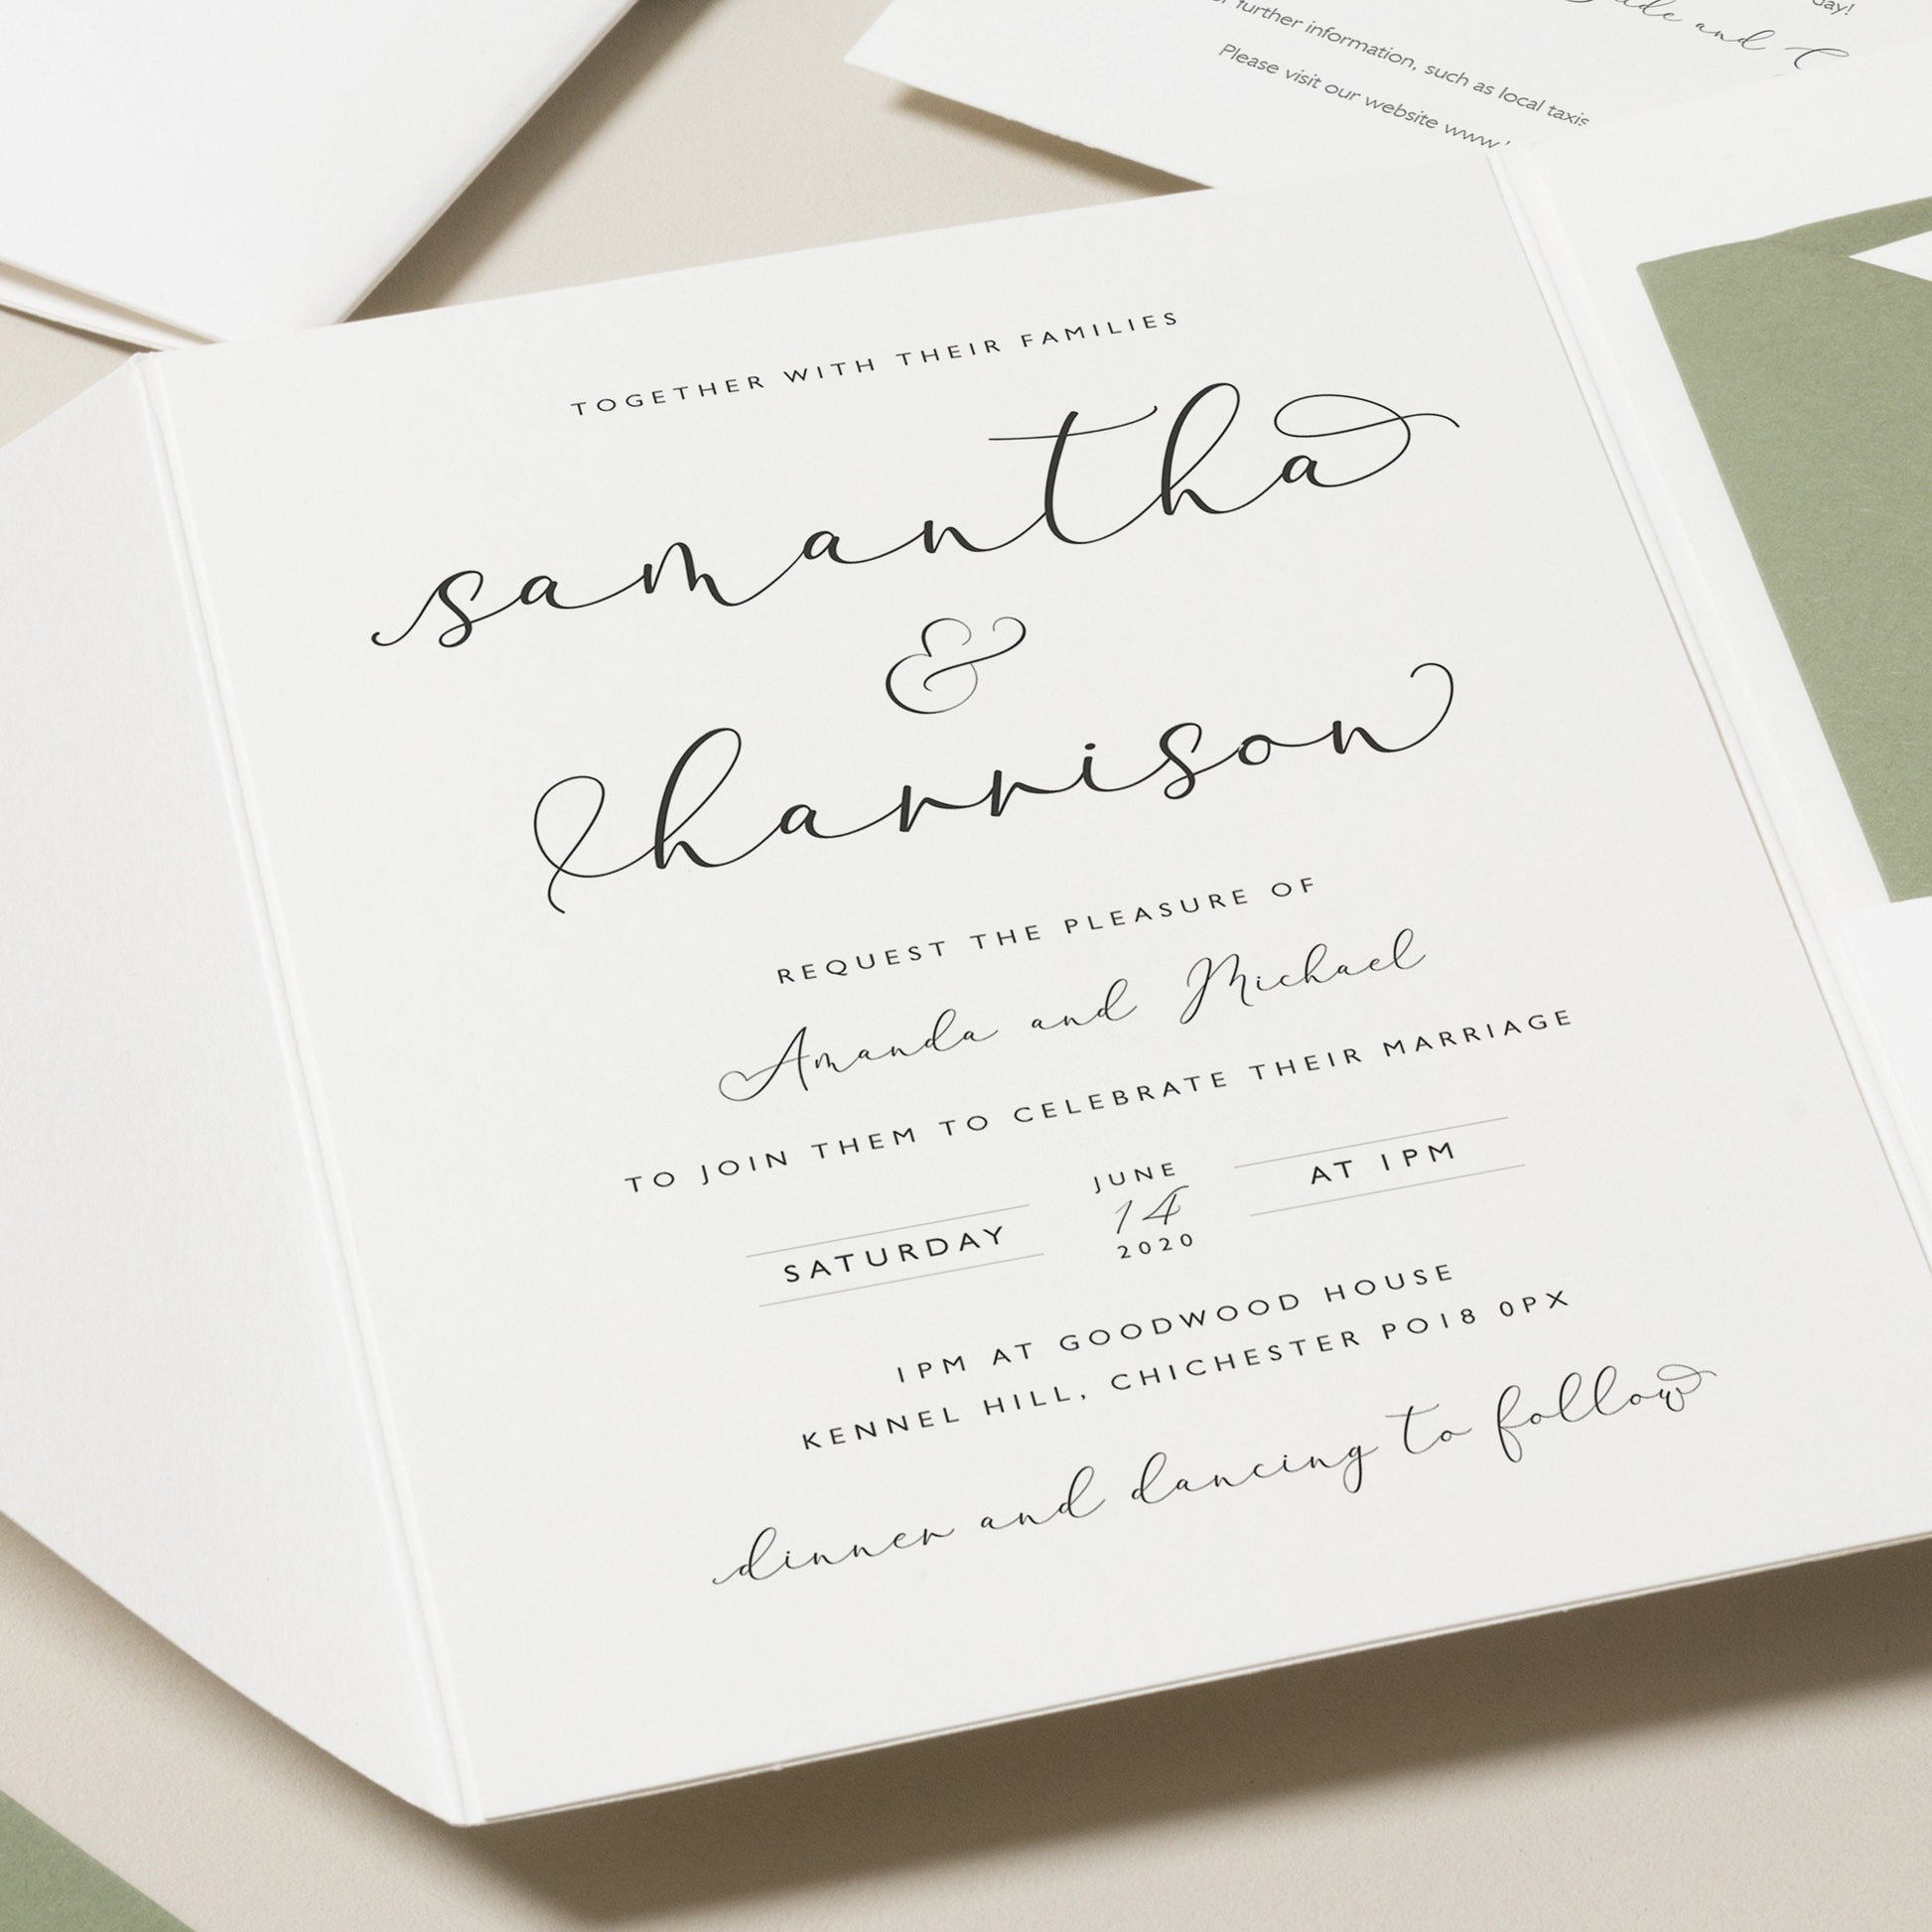 day!
and
further information, such as local taxis
Please visit our website www
TOGETHER WITH THEIR FAMILIES
samantha
&
harrison
REQUEST THE PLEASURE OF
Amanda and Michael
TO JOIN THEM TO CELEBRATE THEIR MARRIAGE
SATURDAY
JUNE
14
2020
AT 1PM
1PM AT GOODWOOD HOUSE
KENNEL HILL, CHICHESTER PO18 0PX
dinner and dancing to follow